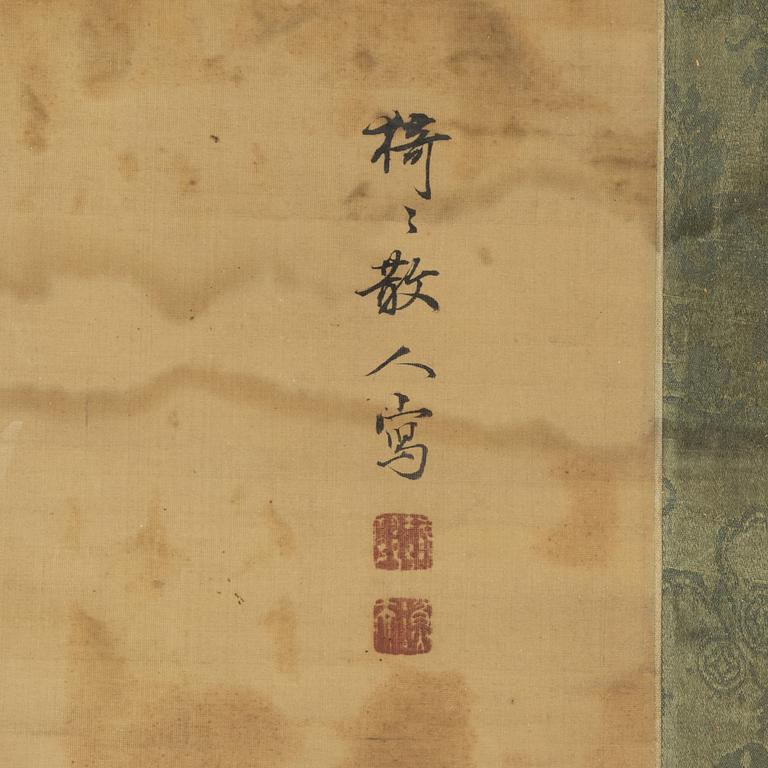 椅〻散人寫